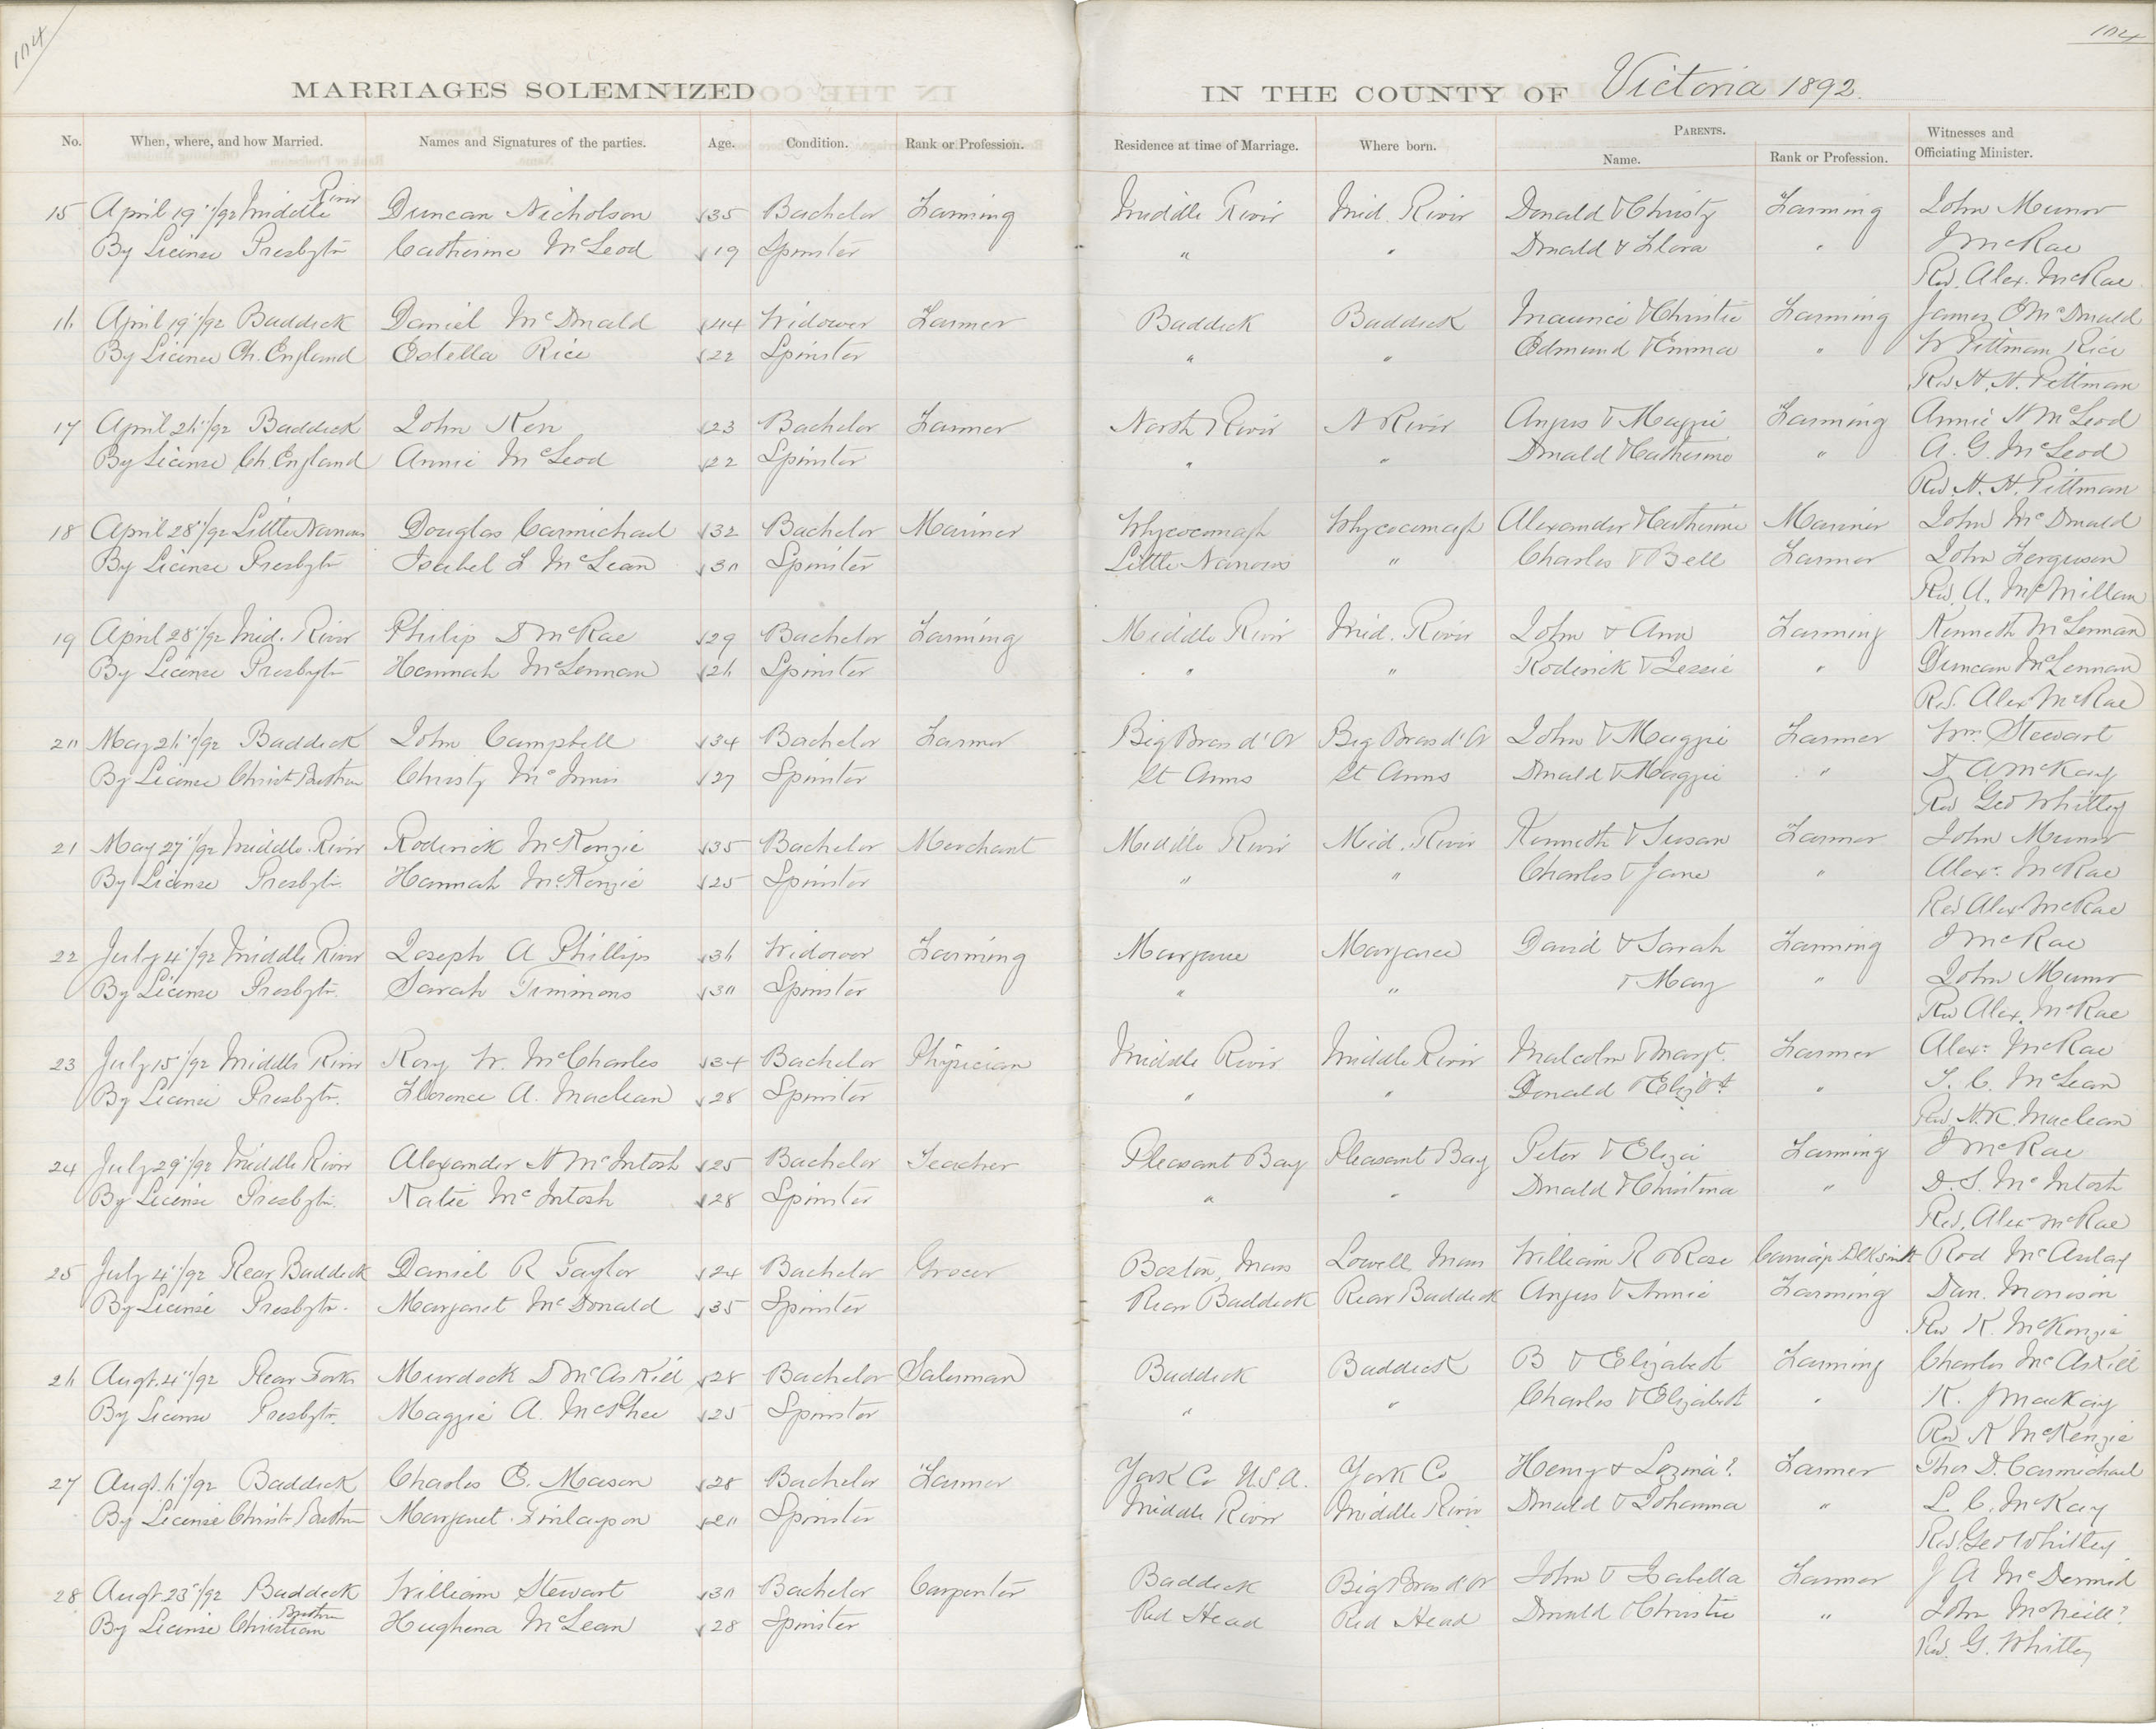 104
104
MARRIAGES SOLEMNIZED IN THE COUNTY OF Victoria 1892.
No. When, where, and how Married. Names and Signatures of the parties. Age. Condition. Rank or Profession. Residence at time of Marriage. Where born. PARENTS. Name. Rank or Profession. Witnesses and Officiating Minister.
15 April 19"/92 Middle River Duncan Nicholson 35 Bachelor Farming Middle River Mid. River Donald & Christy Farming John Munro
By License Presbytr Catherine McLeod 19 Spinster " " Donald & Flora " J McRae
Rev. Alex. McRae
16 April 19"/92 Baddeck Daniel McDonald 44 Widower Farmer Baddeck Baddeck Maurice & Christie Farming James E McDonald
By License Ch. England Estella Rice 22 Spinster " " Edmund & Emma " W Pittman Rice
Rev H. H. Pittman
17 April 26"/92 Baddeck John Kerr 23 Bachelor Farmer North River N River Angus & Maggie Farming Annie H McLeod
By License Ch. England Annie McLeod 22 Spinster " " Donald & Catherine " A. G. McLeod
Rev. H. H. Pittman
18 April 28"/92 Little Narrows Douglas Carmichael 32 Bachelor Mariner Whycocomagh Whycocomagh Alexander & Catherine Mariner John McDonald
By License Presbytr Isabel L McLean 30 Spinster Little Narrows " Charles & Bell Farmer John Ferguson
Rev. A. McMillan
19 April 28"/92 Mid. River Philip D McRae 29 Bachelor Farming Middle River Mid. River John & Ann Farming Kenneth McLennan
By License Presbytr Hannah McLennan 26 Spinster " " Roderick & Jessie " Duncan McLennan
Rev. Alex McRae
20 May 26"/92 Baddeck John Campbell 34 Bachelor Farmer Big Bras d'Or Big Bras d'Or John & Maggie Farmer Wm Stewart
By License Christ Brethren Christy McInnis 27 Spinster St Anns St Anns Donald & Maggie " D A McKay
Rev Geo Whitley
21 May 27"/92 Middle River Roderick McKenzie 35 Bachelor Merchant Middle River Mid. River Kenneth & Susan Farmer John Munro
By License Presbytr. Hannah McKenzie 25 Spinster " " Charles & Jane " Alexr McRae
Rev Alex McRae
22 July 4"/92 Middle River Joseph A Phillips 36 Widower Farming Margaree Margaree David & Sarah Farming J McRae
By License Presbytr. Sarah Timmons 30 Spinster " " & Mary " John Munro
Rev Alex. McRae
23 July 15"/92 Middle River Rory W. McCharles 34 Bachelor Physician Middle River Middle River Malcolm & Margt. Farmer Alexr McRae
By License Presbytr. Florence A. Maclean 28 Spinster " " Donald & Elizbt " T. C. McLean
Rev. H. K. Maclean
24 July 29"/92 Middle River Alexander H McIntosh 25 Bachelor Teacher Pleasant Bay Pleasant Bay Peter & Eliza Farming J McRae
By License Presbytr. Katie McIntosh 28 Spinster " " Donald & Christina " D. S. McIntosh
Rev. Alex McRae
25 July 4"/92 Rear Baddeck Daniel R Taylor 24 Bachelor Grocer Boston, Mass Lowell Mass William R & Rose Carriage Blksmith Rod McAulay
By License Presbytr. Margaret McDonald 35 Spinster Rear Baddeck Rear Baddeck Angus & Annie Farming Dan. Morrison
Rev K. McKenzie
26 Augt. 4"/92 Rear Forks Murdoch D McAskill 28 Bachelor Salesman Baddeck Baddeck B & Elizabeth Farming Charles McAskill
By License Presbytr. Maggie A. McPhee 25 Spinster " " Charles & Elizabeth " K. J MacKay
Rev K McKenzie
27 Augt. 6"/92 Baddeck Charles E. Mason 28 Bachelor Farmer York Co U.S.A. York Co Henry & Lozina? Farmer Thos D. Carmichael
By License Christ Brethn Margaret Finlayson 20 Spinster Middle River Middle River Donald & Johanna " L. C. McKay
Rev. Geo Whitley
28 Augt 23"/92 Baddeck William Stewart 30 Bachelor Carpenter Baddeck Big Bras d'Or John & Isabella Farmer J A McDermid
By License Christian Brethrn Hughena McLean 28 Spinster Red Head Red Head Donald & Christie " John McNeill?
Rev. G. Whitley